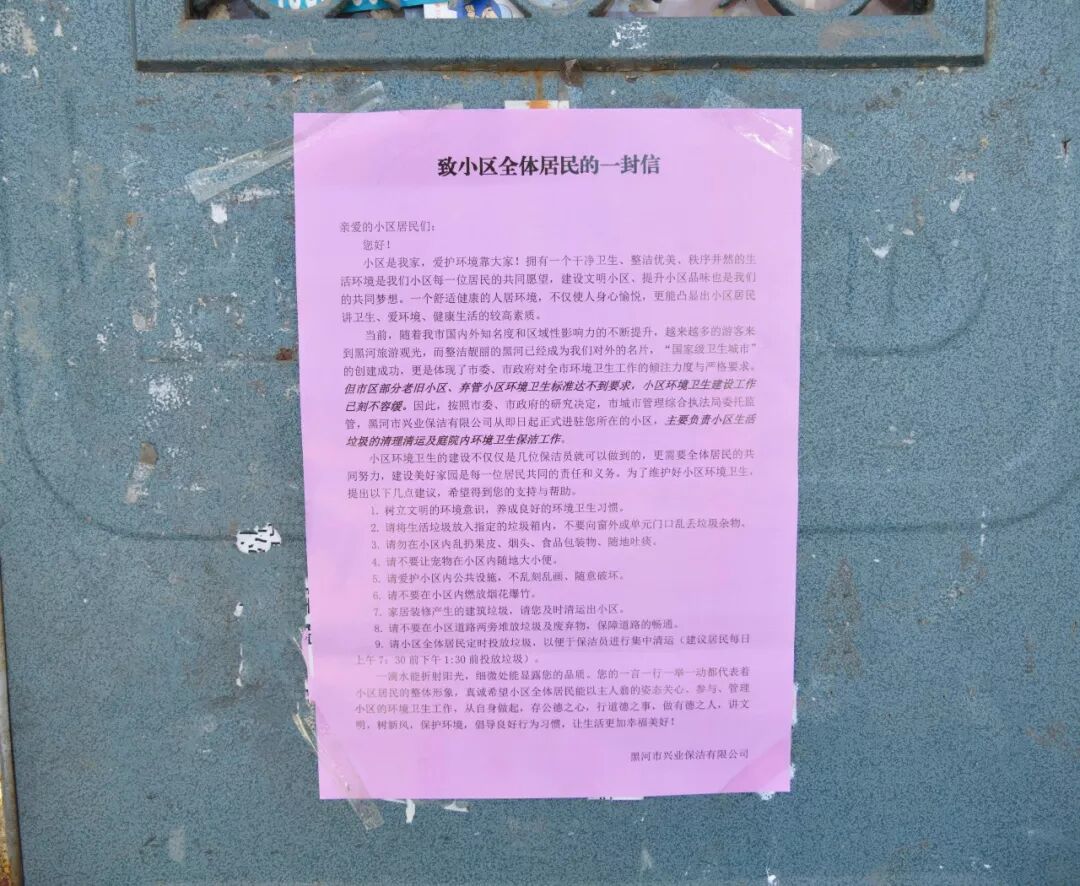 致小区全体居民的一封信
亲爱的小区居民们：
您好！
小区是我家，爱护环境靠大家！拥有一个干净卫生、整洁优美、秩序井然的生
活环境是我们小区每一位居民的共同愿望，建设文明小区、提升小区品味也是我们
的共同梦想。一个舒适健康的人居环境，不仅使人身心愉悦，更能凸显出小区居民
讲卫生、爱环境、健康生活的较高素质。
当前，随着我市国内外知名度和区域性影响力的不断提升，越来越多的游客来
到黑河旅游观光，而整洁靓丽的黑河已经成为我们对外的名片，“国家级卫生城市”
的创建成功，更是体现了市委、市政府对全市环境卫生工作的倾注力度与严格要求。
但市区部分老旧小区、弃管小区环境卫生标准达不到要求，小区环境卫生建设工作
已刻不容缓。因此，按照市委、市政府的研究决定，市城市管理综合执法局委托监
管，黑河市兴业保洁有限公司从即日起正式进驻您所在的小区，主要负责小区生活
垃圾的清理清运及庭院内环境卫生保洁工作。
小区环境卫生的建设不仅仅是几位保洁员就可以做到的，更需要全体居民的共
同努力，建设美好家园是每一位居民共同的责任和义务。为了维护好小区环境卫生，
提出以下几点建议，希望得到您的支持与帮助。
1. 树立文明的环境意识，养成良好的环境卫生习惯。
2. 请将生活垃圾放入指定的垃圾箱内，不要向窗外或单元门口乱丢垃圾杂物、
3. 请勿在小区内乱扔果皮、烟头、食品包装物、随地吐痰。
4. 请不要让宠物在小区内随地大小便。
5. 请爱护小区内公共设施，不乱刻乱画、随意破坏。
6. 请不要在小区内燃放烟花爆竹。
7. 家居装修产生的建筑垃圾，请您及时清运出小区。
8. 请不要在小区道路两旁堆放垃圾及废弃物、保障道路的畅通。
9. 请小区全体居民定时投放垃圾，以便于保洁员进行集中清运（建议居民每日
上午7：30前下午1:30前投放垃圾）。
一滴水能折射阳光，细微处能显露您的品质。您的一言一行一举一动都代表着
小区居民的整体形象，真诚希望小区全体居民能以主人翁的姿态关心、参与、管理
小区的环境卫生工作，从自身做起，存公德之心，行道德之事，做有德之人，讲文
明，树新风，保护环境，倡导良好行为习惯，让生活更加幸福美好！
黑河市兴业保洁有限公司